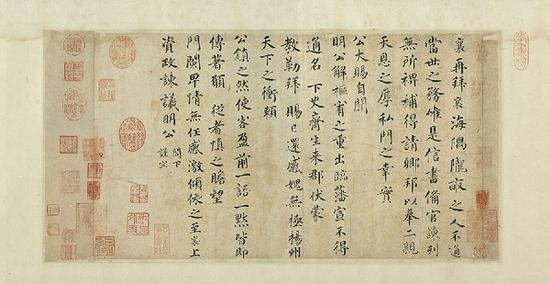 襄再拜襄海隅隴畝之人不通
當世之務唯是信書備官諫列
無所裨補得請鄉邦以奉二親
天恩之厚私門之幸實
公大賜自聞
明公解樞宥之重出臨藩宣不得
通名下史齋生來郡伏蒙
教勒拜賜已還感愧無極楊州
天下之衝賴
公鎮之然使客盈前一語一默皆即
傳著願從者慎之瞻望
門闌卑情無任感激傾依之至襄上
資政諫議明公閣下
謹空